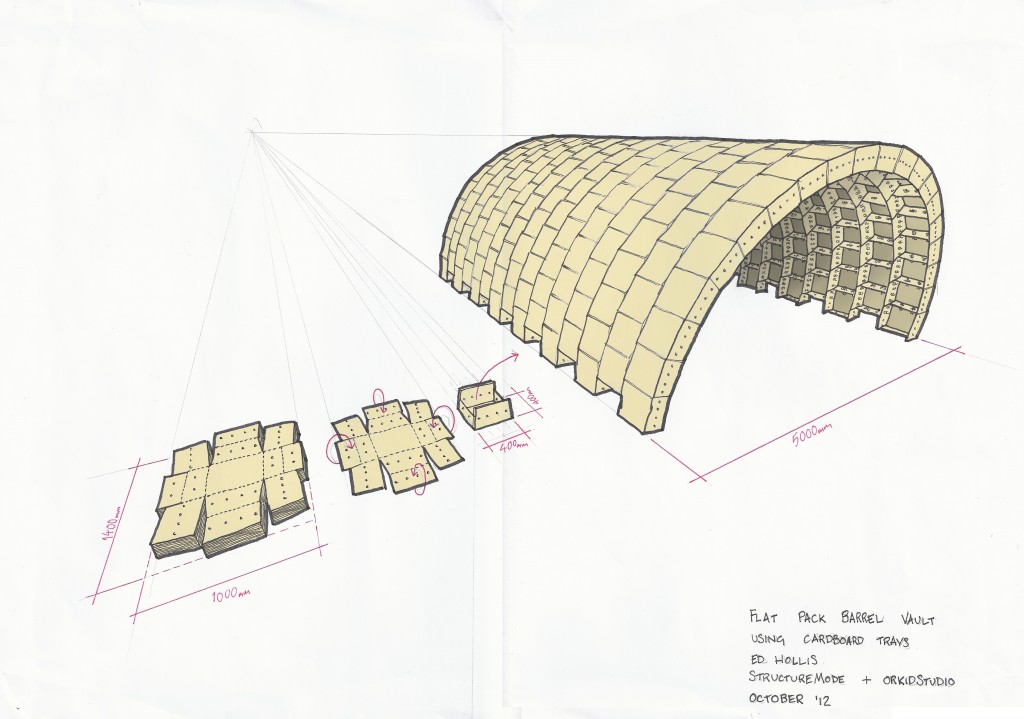 5000mm
400mm
400mm
1400mm
1000mm
FLAT PACK BARREL VAULT
USING CARDBOARD TRAYS
ED HOLLIS
STRUCTUREMODE + ORKIDSTUDIO
OCTOBER '12